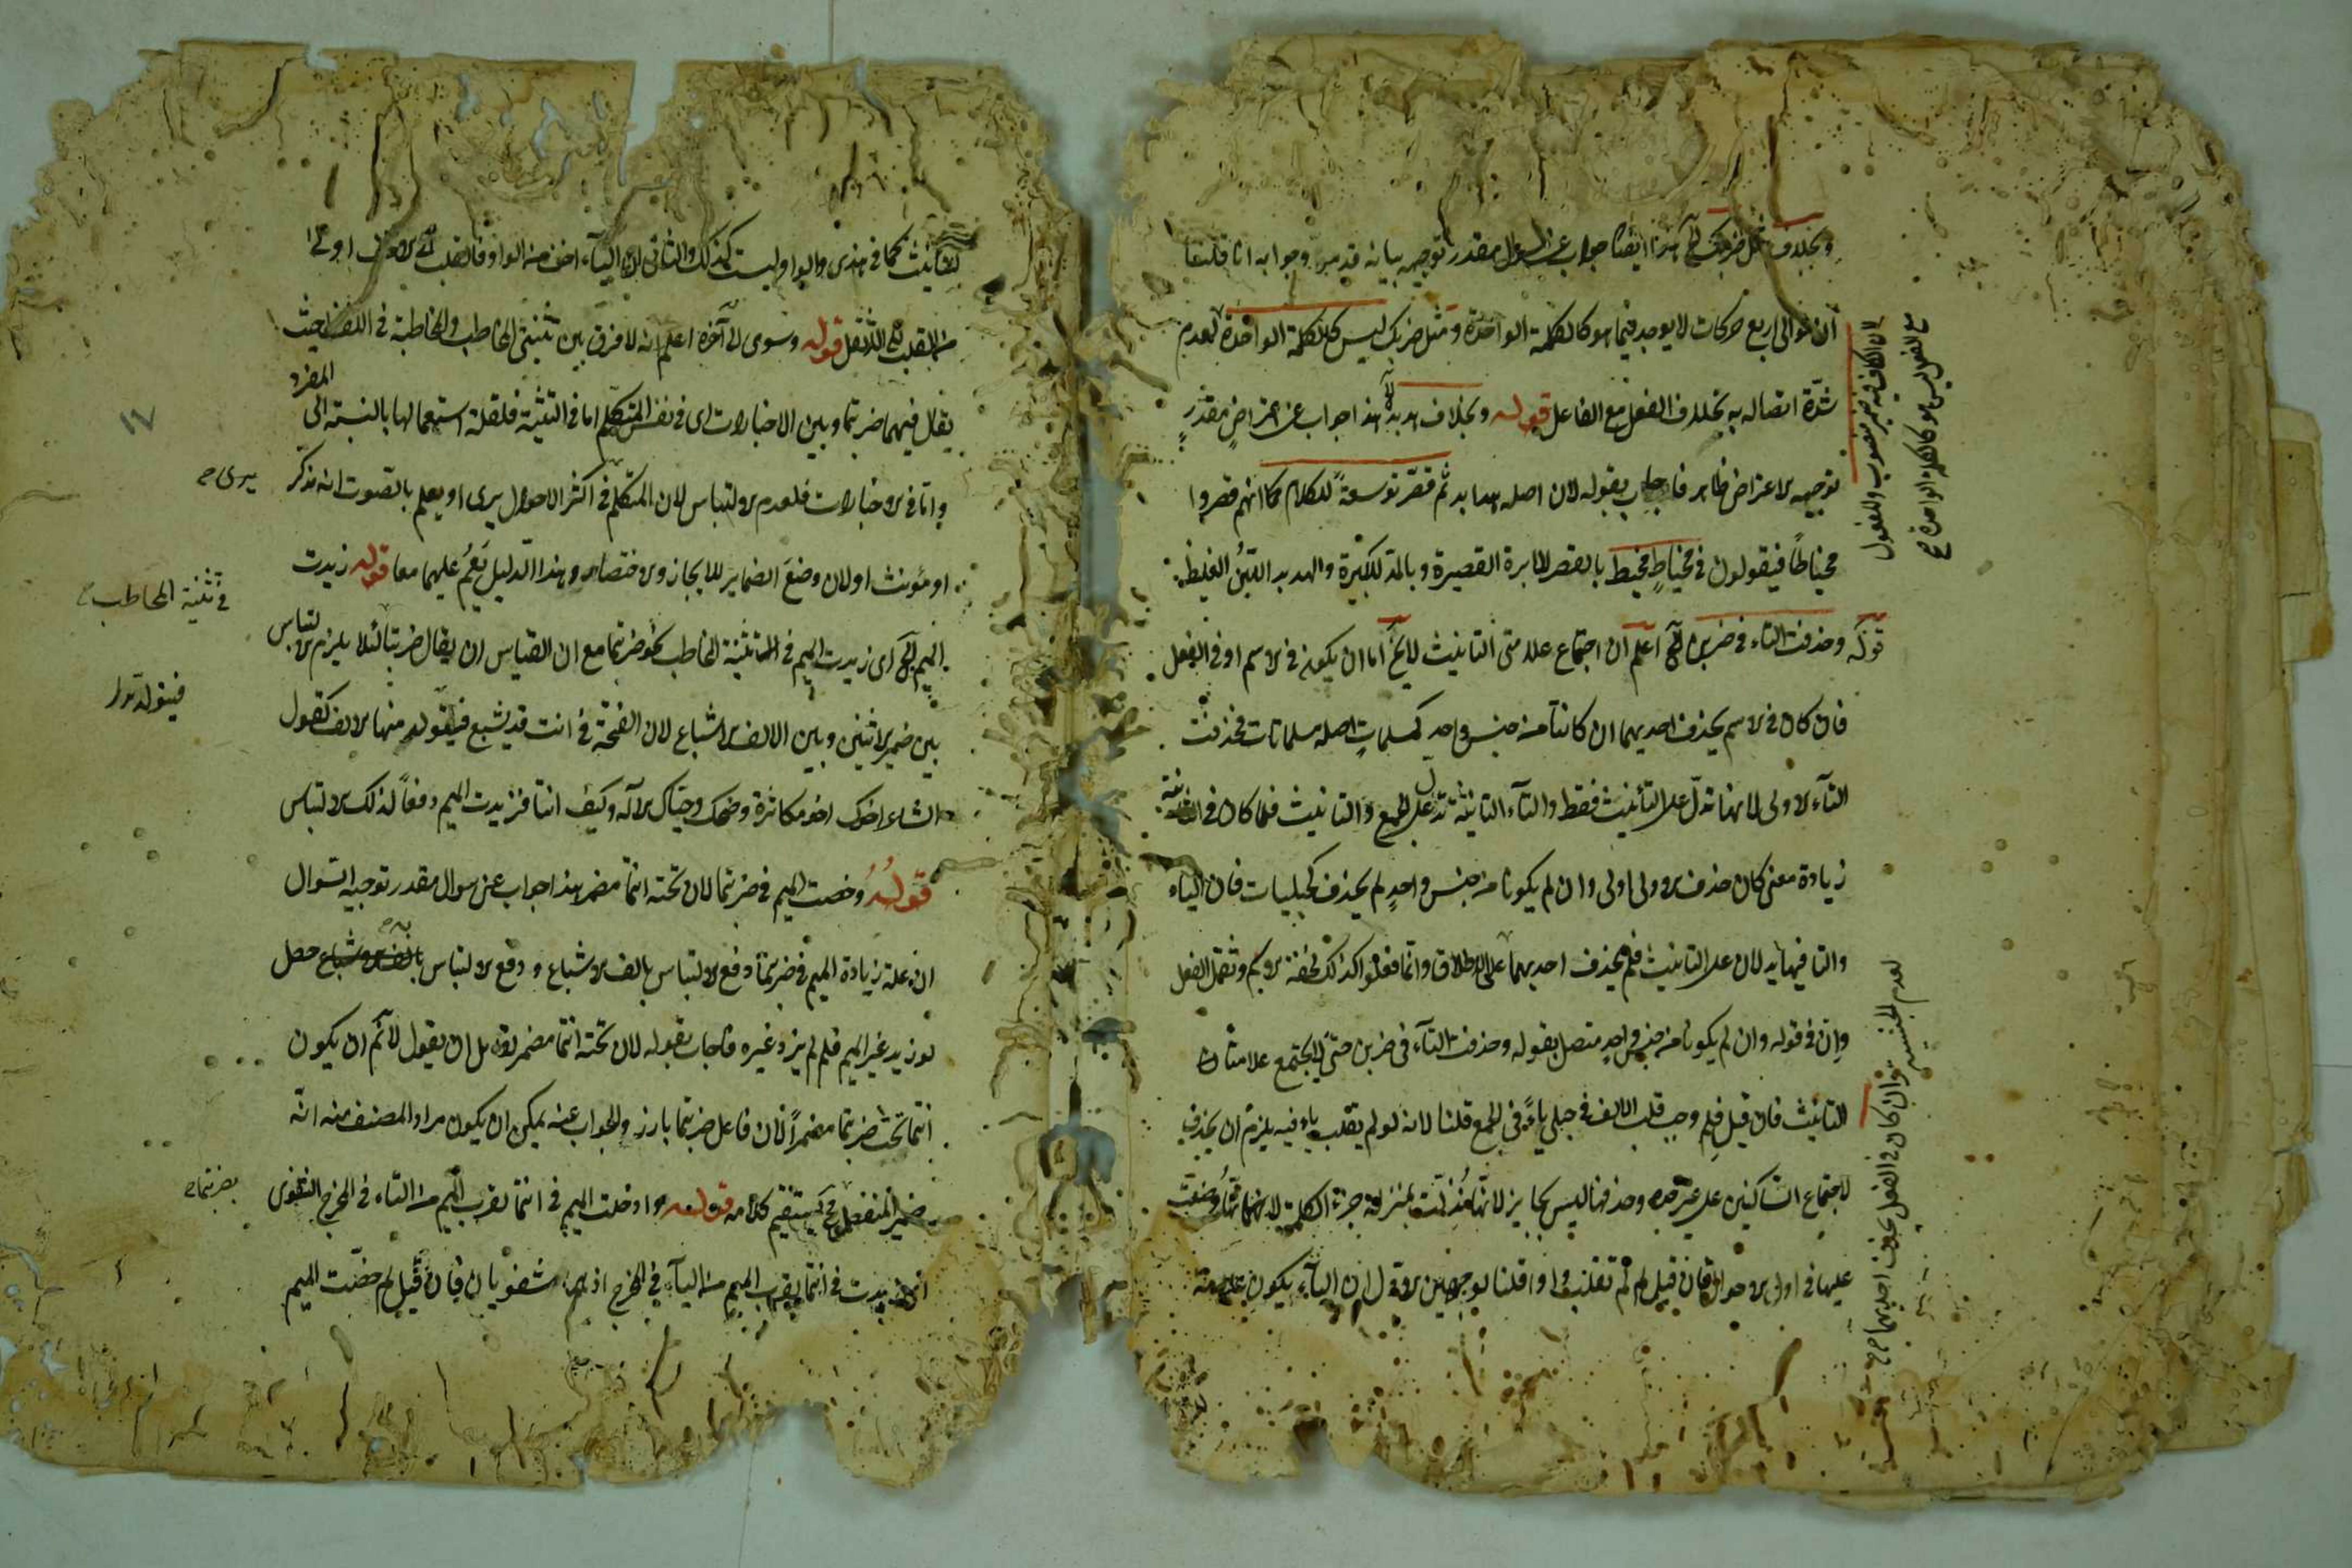 وبخلاف مثل ضربك الخ هذا ايضا جواب عن سوال مقدر توجيه بيانه قد مر وجوابه انا قلنا
ان توالى اربع حركات لا يوجد فيما هو كالكلمة الواحدة ومثل ضربك ليس كالكلمة الواحدة لعدم
شدّة اتصاله به بخلاف الفعل مع الفاعل قوله وبخلاف هدبد لان هذا جواب عن اعتراض مقدرٍ
توجيه الاعتراض ظاهر فاجاب بقوله لان اصله هدابد ثم قصّر توسعةً للكلام كما انهم قصروا
مخياطاً فيقولون في مخياطٍ مخيط بالقصر للابرة القصيرة وبالمد للكبيرة والهدبد اللبنُ الغليظ
قوله وحذفت التاء في ضربن الخ اعلم ان اجتماع علامتى التانيث لا يخ اما ان يكون فى الاسم او فى الفعل
فان كان فى الاسم يحذف احديهما ان كانتا من جنس واحد كمسلماتٍ اصله مسلمتات فحذفت
التآء الاولى لانها تدلّ على التأنيث فقط والتآء الثانية تدل على الجمع والتانيث فلما كان فى الثانية
زيادة معنى كان حذف الاولى اولى وان لم يكونا من جنس واحدٍ لم يحذف كحبليات فان الياء
والتا فيهما يدلان على التانيث فلم يحذف احديهما على الاطلاق وانما فعلوا كذلك لخفة الاسم وثقل الفعل
وانّ فى قوله وان لم يكونا من جنس واحدٍ متصل بقوله وحذفت التآء فى ضربن حتى لا يجتمع علامتان
التانيث فان قيل فلِم وجب قلب الالف فى حبلى ياءً فى الجمع قلنا لانه لو لم يقلب ياء فيه يلزم ان يحذف
لاجتماع الساكنين على غير حده وحذفها ليس بجايز لانها نُزلت بمنزلة جزء الكلمة لانها وضعت
عليها فى اول الاحوال فان قيل لم لم تقلب واوا قلنا لوجهين الاول ان اليآء يكون علامة
لان الكاف فيه ضمير منصوب والمفعول
مع الفعل ليس هو كالكلمة الواحدة صح
لعدم الجنسية وان كان فى الفعل يحذف احديهما صح
للتانيث كما فى هذى والواو ليست كذلك والثانى لان اليآء اخف من الواو فالقلب الى الاخف اولى
من القلب الى الاثقل قوله وسوى الى آخره اعلم انه لا فرق بين تثنيتى المخاطب والمخاطبة فى اللفظ حيث
يقال فيهما ضربتما وبين الاخبارات اى فى نفس المتكلم اما فى التثنية فلقلة استعمالها بالنسبة الى المفرد
واما فى الاخبارات فلعدم الالتباس لان المتكلم فى اكثر الاحوال يرى او يعلم بالصوت انه مذكر
او مؤنث او لان وضعَ الضماير للايجاز والاختصار وهذا الدليل يَعُمّ عليهما معا قوله زيدت
الميم الخ اى زيدت الميم فى التثنية المخاطب نحو ضربتما مع ان القياس ان يقال ضربتا لئلا يلزم الالتباس
بين ضمير الاثنين وبين الالف الاشباع لان الفتحة فى انت قد يشبع فيتولد منها الالف كقول
الشاعر اخوك اخو مكاشرة وضحك وحيّاك الاله وكيف انتا فزيدت الميم دفعاً لذلك الالتباس
قولهُ وخصت الميم فى ضربتما لان تحته انتما مضمر هذا جواب عن سوال مقدر توجيه السوال
ان علة زيادة الميم فى ضربتما دفع الالتباس بالف الاشباع ودفع الالتباس حصل
لو زيد غير الميم فلم لم يزد غيره فاجاب بقوله لان تحته انتما مضمر لقايل ان يقول لا نم ان يكون
انتما تحت ضربتما مضمراً لان فاعل ضربتما بارز والجواب عنه يمكن ان يكون مراد المصنف منه انه
ضمير المنفصل فح يستقيم كلامه قوله وادخلت الميم فى انتما لقرب الميم من التاء فى المخرج اللغوى
انما زيدت فى انتما لقرب الميم من اليآء فى المخرج اذ هما شفويان فان قيل لم خصّت الميم
١٧
يرى ح
فى تثنية المخاطب
فيتولد
بضربتما ح